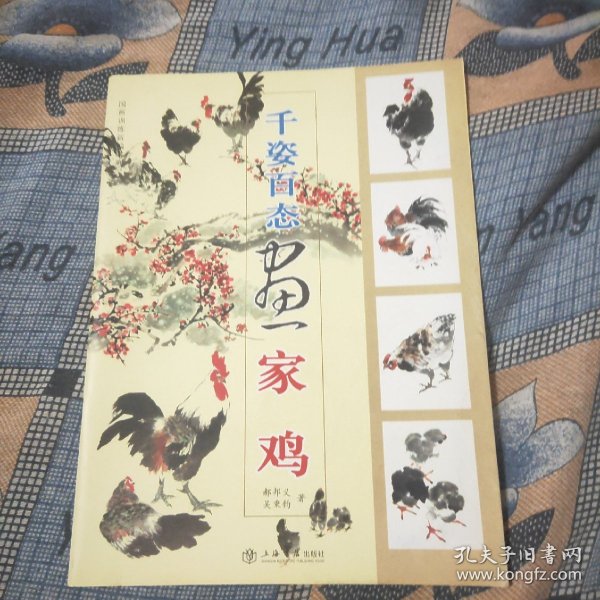 Ying Hua
国画训练
千姿百态
画
家鸡
郝邦义
吴秉钧
著
上海书店出版社
ang
Yang
孔夫子旧书网
www.kongfz.com